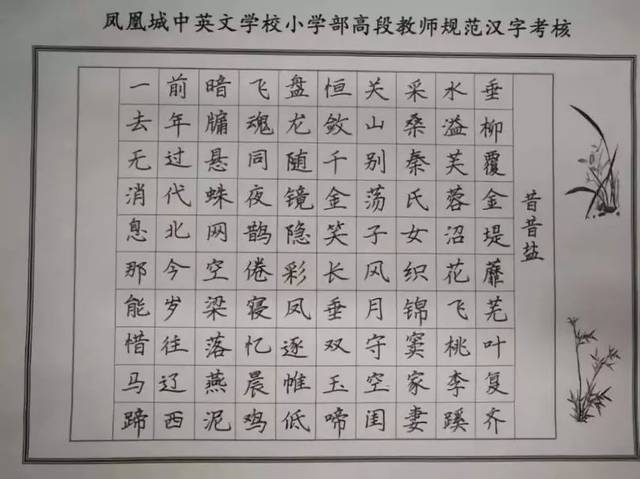 凤凰城中英文学校小学部高段教师规范汉字考核
昔昔盐
垂柳覆金堤蘼芜叶复齐
水溢芙蓉沼花飞桃李蹊
采桑秦氏女织锦窦家妻
关山别荡子风月守空闺
恒敛千金笑长垂双玉啼
盘龙随镜隐彩凤逐帷低
飞魂同夜鹊倦寝忆晨鸡
暗牖悬蛛网空梁落燕泥
前年过代北今岁往辽西
一去无消息那能惜马蹄